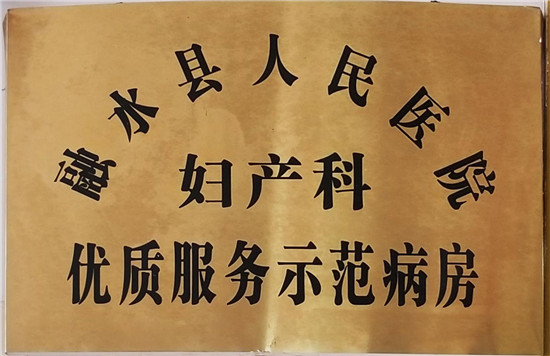 融水县人民医院
妇产科
优质服务示范病房